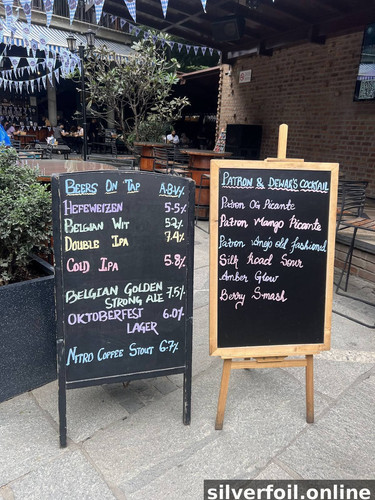 Beers On Tap A.B.V%
Hefeweizen 5.5%
Belgian Wit 5.2%
Double Ipa 7.4%
Cold Ipa 5.8%
Belgian Golden
Strong Ale 7.5%
Oktoberfest 6.0%
Lager
Nitro Coffee Stout 6.7%
Patron & Dewar's Cocktail
Patron Og Picante
Patron Mango Picante
Patron Anejo old fashioned
Silk Road Sour
Amber Glow
Berry Smash
silverfoil.online